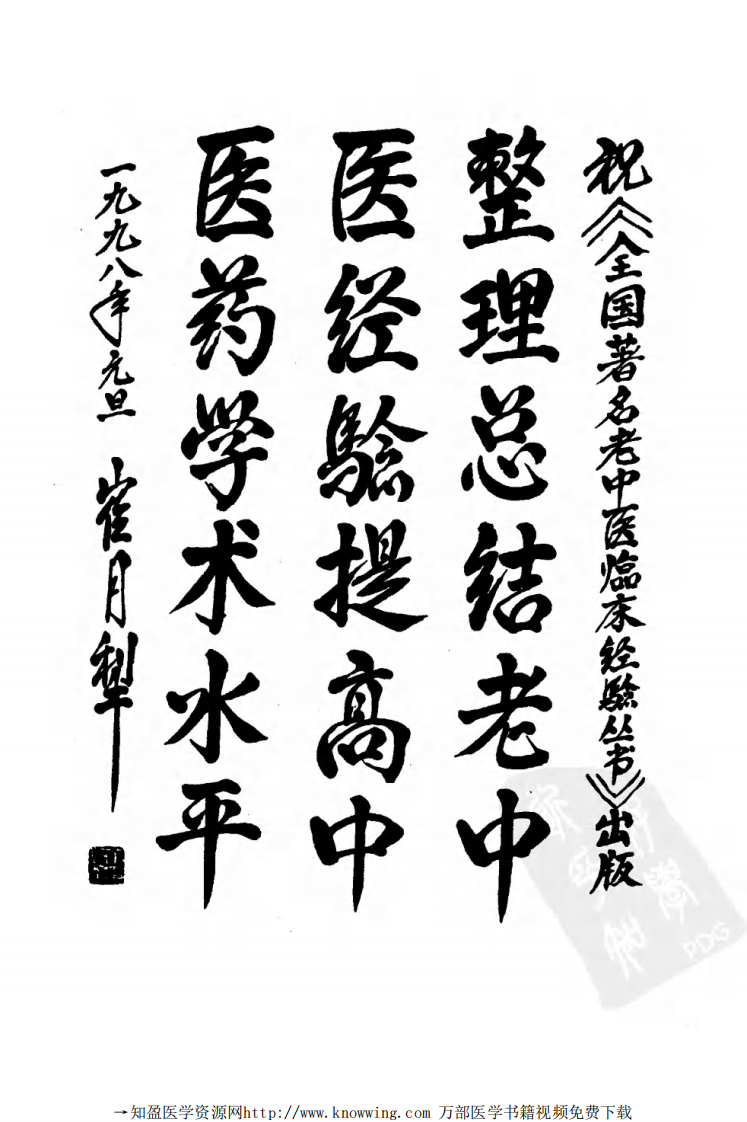 祝《全国著名老中医临床经验丛书》出版
整理总结老中
医经验提高中
医药学术水平
一九九八年元旦 崔月犁
PDG
→知盈医学资源网http://www.knowwing.com 万部医学书籍视频免费下载